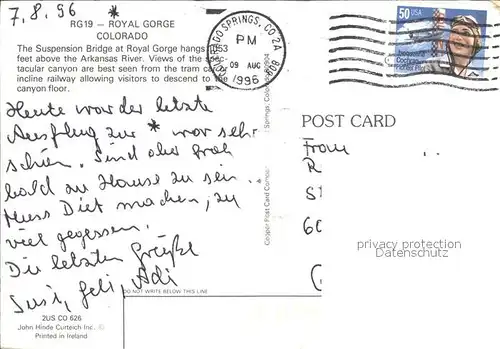 7.8.96 *
RG19 — ROYAL GORGE
COLORADO
The Suspension Bridge at Royal Gorge hangs 1053
feet above the Arkansas River. Views of the spec-
tacular canyon are best seen from the tram car or
incline railway allowing visitors to descend to the
canyon floor.
COLORADO SPRINGS, CO 2A
PM
09 AUG
1996
809
50 USA
Jacqueline
Cochran
Pioneer Pilot
Heute war der letzte
Ausflug zur * war sehr
schön. Sind aber froh
bald zu Hause zu sein.
Muss Diät machen, zu
viel gegessen.
Die letzten Grüße
Susi, Geli, Adi
POST CARD
Frau
R
S
60
privacy protection
Datenschutz
DO NOT WRITE BELOW THIS LINE
2US CO 626
John Hinde Curteich Inc. ©
Printed in Ireland